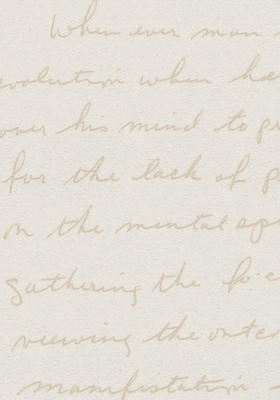 When ever man
evolution when ha
over his mind to
for the lack of
on the mental
gathering the
viewing the outer
manifistation